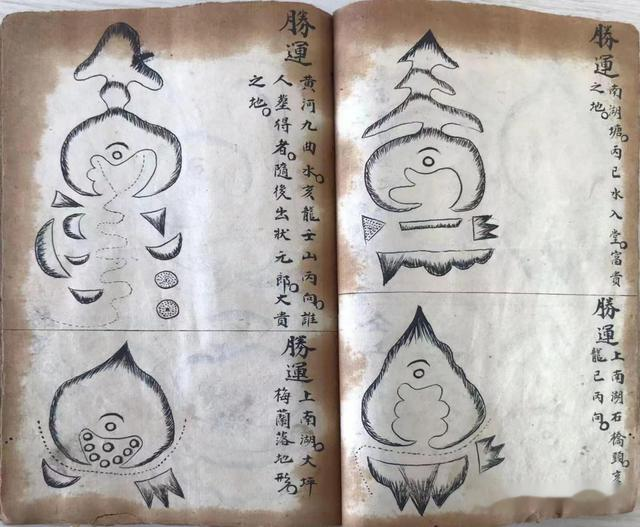 勝運
南湖塘丙巳水入堂富貴
之地
勝運
上南湖石橋頭亥
龍巳丙向
勝運
黃河九曲水亥龍壬山丙向誰
人塟得者隨後出狀元郎大貴
之地
勝運
上南湖大坪
梅蘭落地形